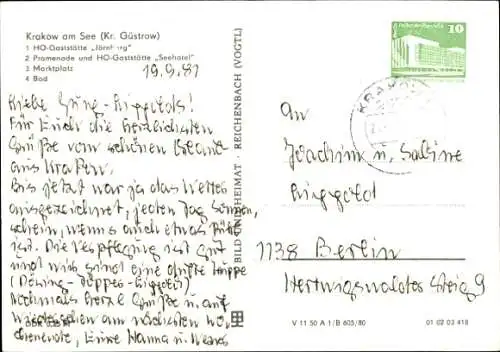 Krakow am See (Kr. Güstrow)
1 HO-Gaststätte „Jörnberg"
2 Promenade und HO-Gaststätte „Seehotel"
3 Marktplatz
4 Bad
19.9.81
Für Euch die herzlichsten
Grüße vom schönen
aus Krakow.
Bis jetzt war ja das Wetter
ausgezeichnet, jeden Tag Sonnen-
schein, wenns auch etwas kühl
ist. Die Verpflegung ist gut
und wir sind eine dufte Truppe
Nochmals herzl. Grüße u. auf
Wiedersehen am nächsten Wo-
chenende, Eure Hanna u.
BILD UND HEIMAT REICHENBACH (VOGTL)
10
KRAKOW
An
Joachim u. Sabine
Ringgold
1138 Berlin
Hertwigswalder Steig 9
V 11 50 A 1/B 605/80
01 02 03 418